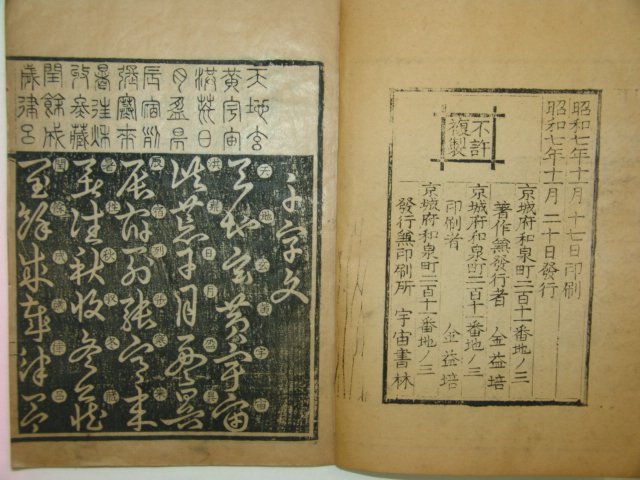 昭和七年十月 十七日印刷
昭和七年十月 二十日發行
京城府和泉町二百十一番地ノ三
著作兼發行者 金益培
京城府和泉町二百十一番地ノ三
印刷者 金益培
京城府和泉町二百十一番地ノ三
發行兼印刷所 宇宙書林
不許
複製
天地玄
黃宇宙
洪荒日
月盈昃
辰宿列
張寒來
暑往秋
收冬藏
閏餘成
歲律呂
千字文
天地玄黃宇宙
天地玄黃宇宙
洪荒日月盈昃
洪荒日月盈昃
辰宿列張寒來
辰宿列張寒來
暑往秋收冬藏
暑往秋收冬藏
閏餘成歲律呂
閏餘成歲律呂